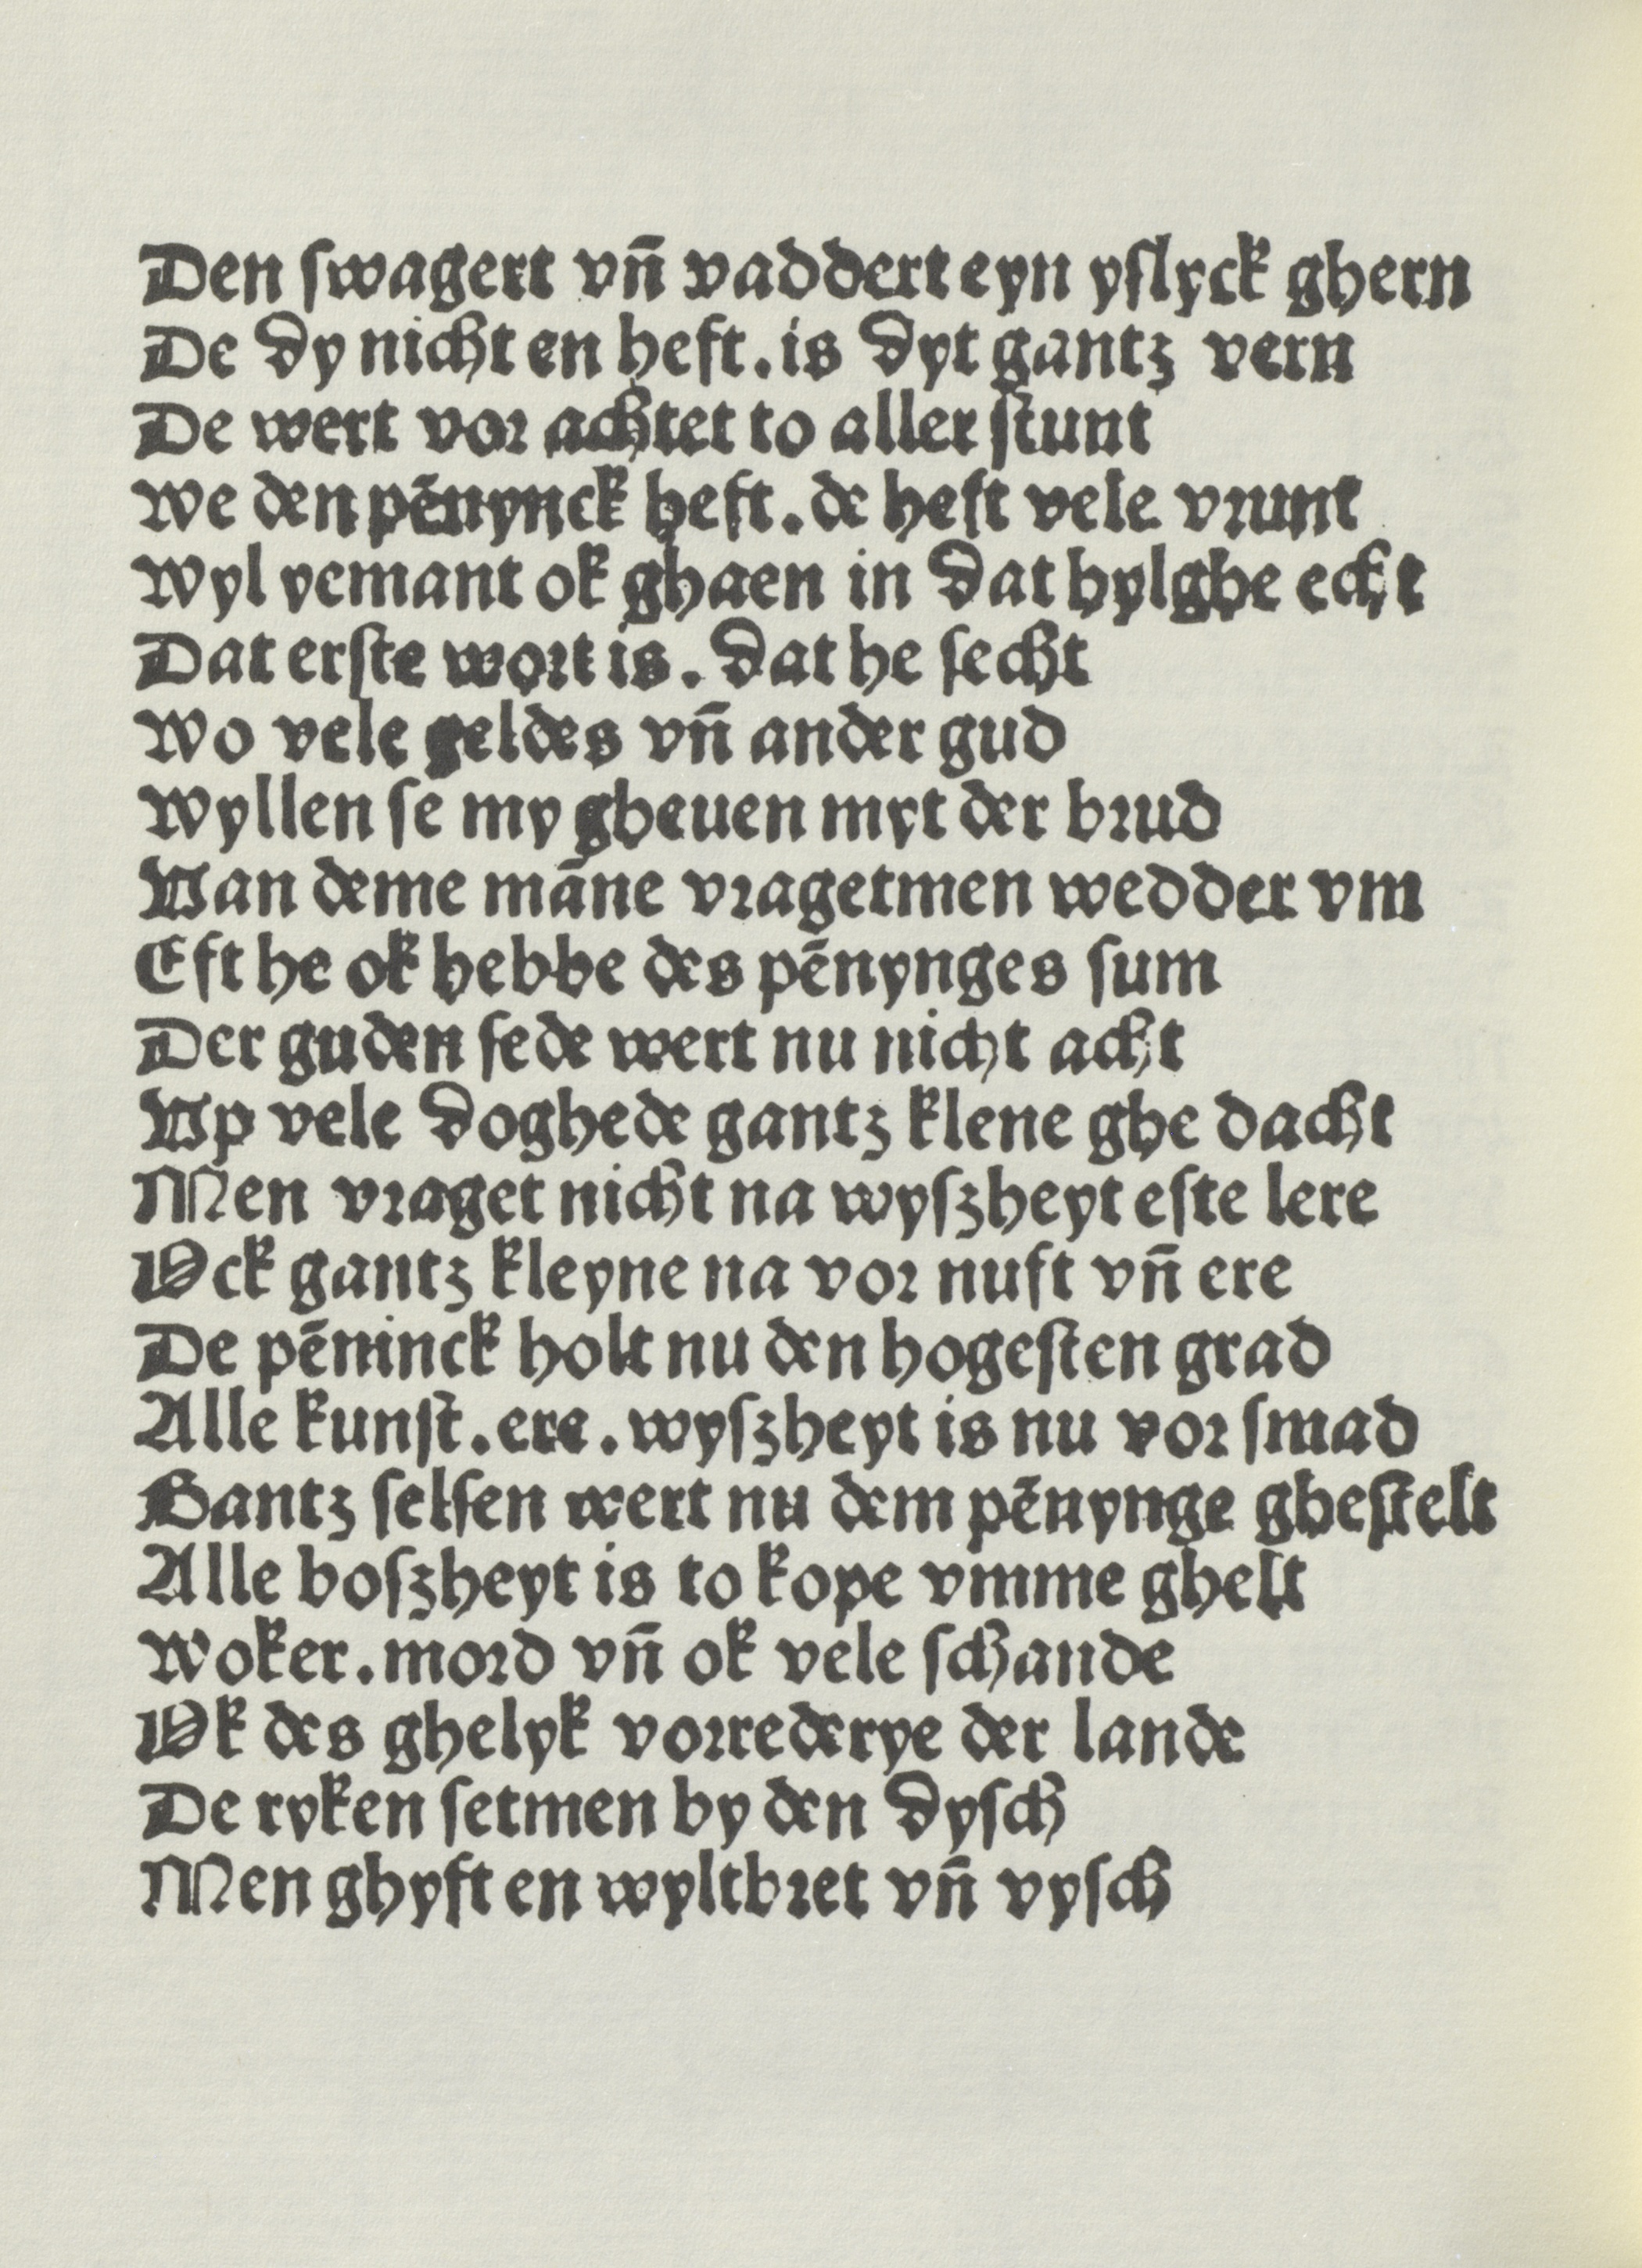 Den ſwagert vn̄ vaddert eyn yſlyck ghern
De dy nicht en heft. is dyt gantz vern
De wert vor achtet to aller ſtunt
We den pēnynck heft. de heft vele vrunt
Wyl yemant ok ghaen in dat hylghe echt
Dat erſte wort is. dat he ſecht
Wo vele geldes vn̄ ander gud
Wyllen ſe my gheuen myt der brud
Van deme māne vragetmen wedder vm
Eft he ok hebbe des pēnynges ſum
Der guden ſede wert nu nicht acht
Vp vele doghede gantz klene ghe dacht
Men vraget nicht na wyſzheyt efte lere
Ock gantz kleyne na vor nuft vn̄ ere
De pēninck holt nu den hogeſten grad
Alle kunſt. ere. wyſzheyt is nu vor ſmad
Gantz ſelſen wert nu dem pēnynge gheſtelt
Alle boſzheyt is to kope vmme ghelt
Woker. mord vn̄ ok vele ſchande
Ok des ghelyk vorrederye der lande
De ryken ſetmen by den dyſch
Men ghyft en wyltbret vn̄ vyſch